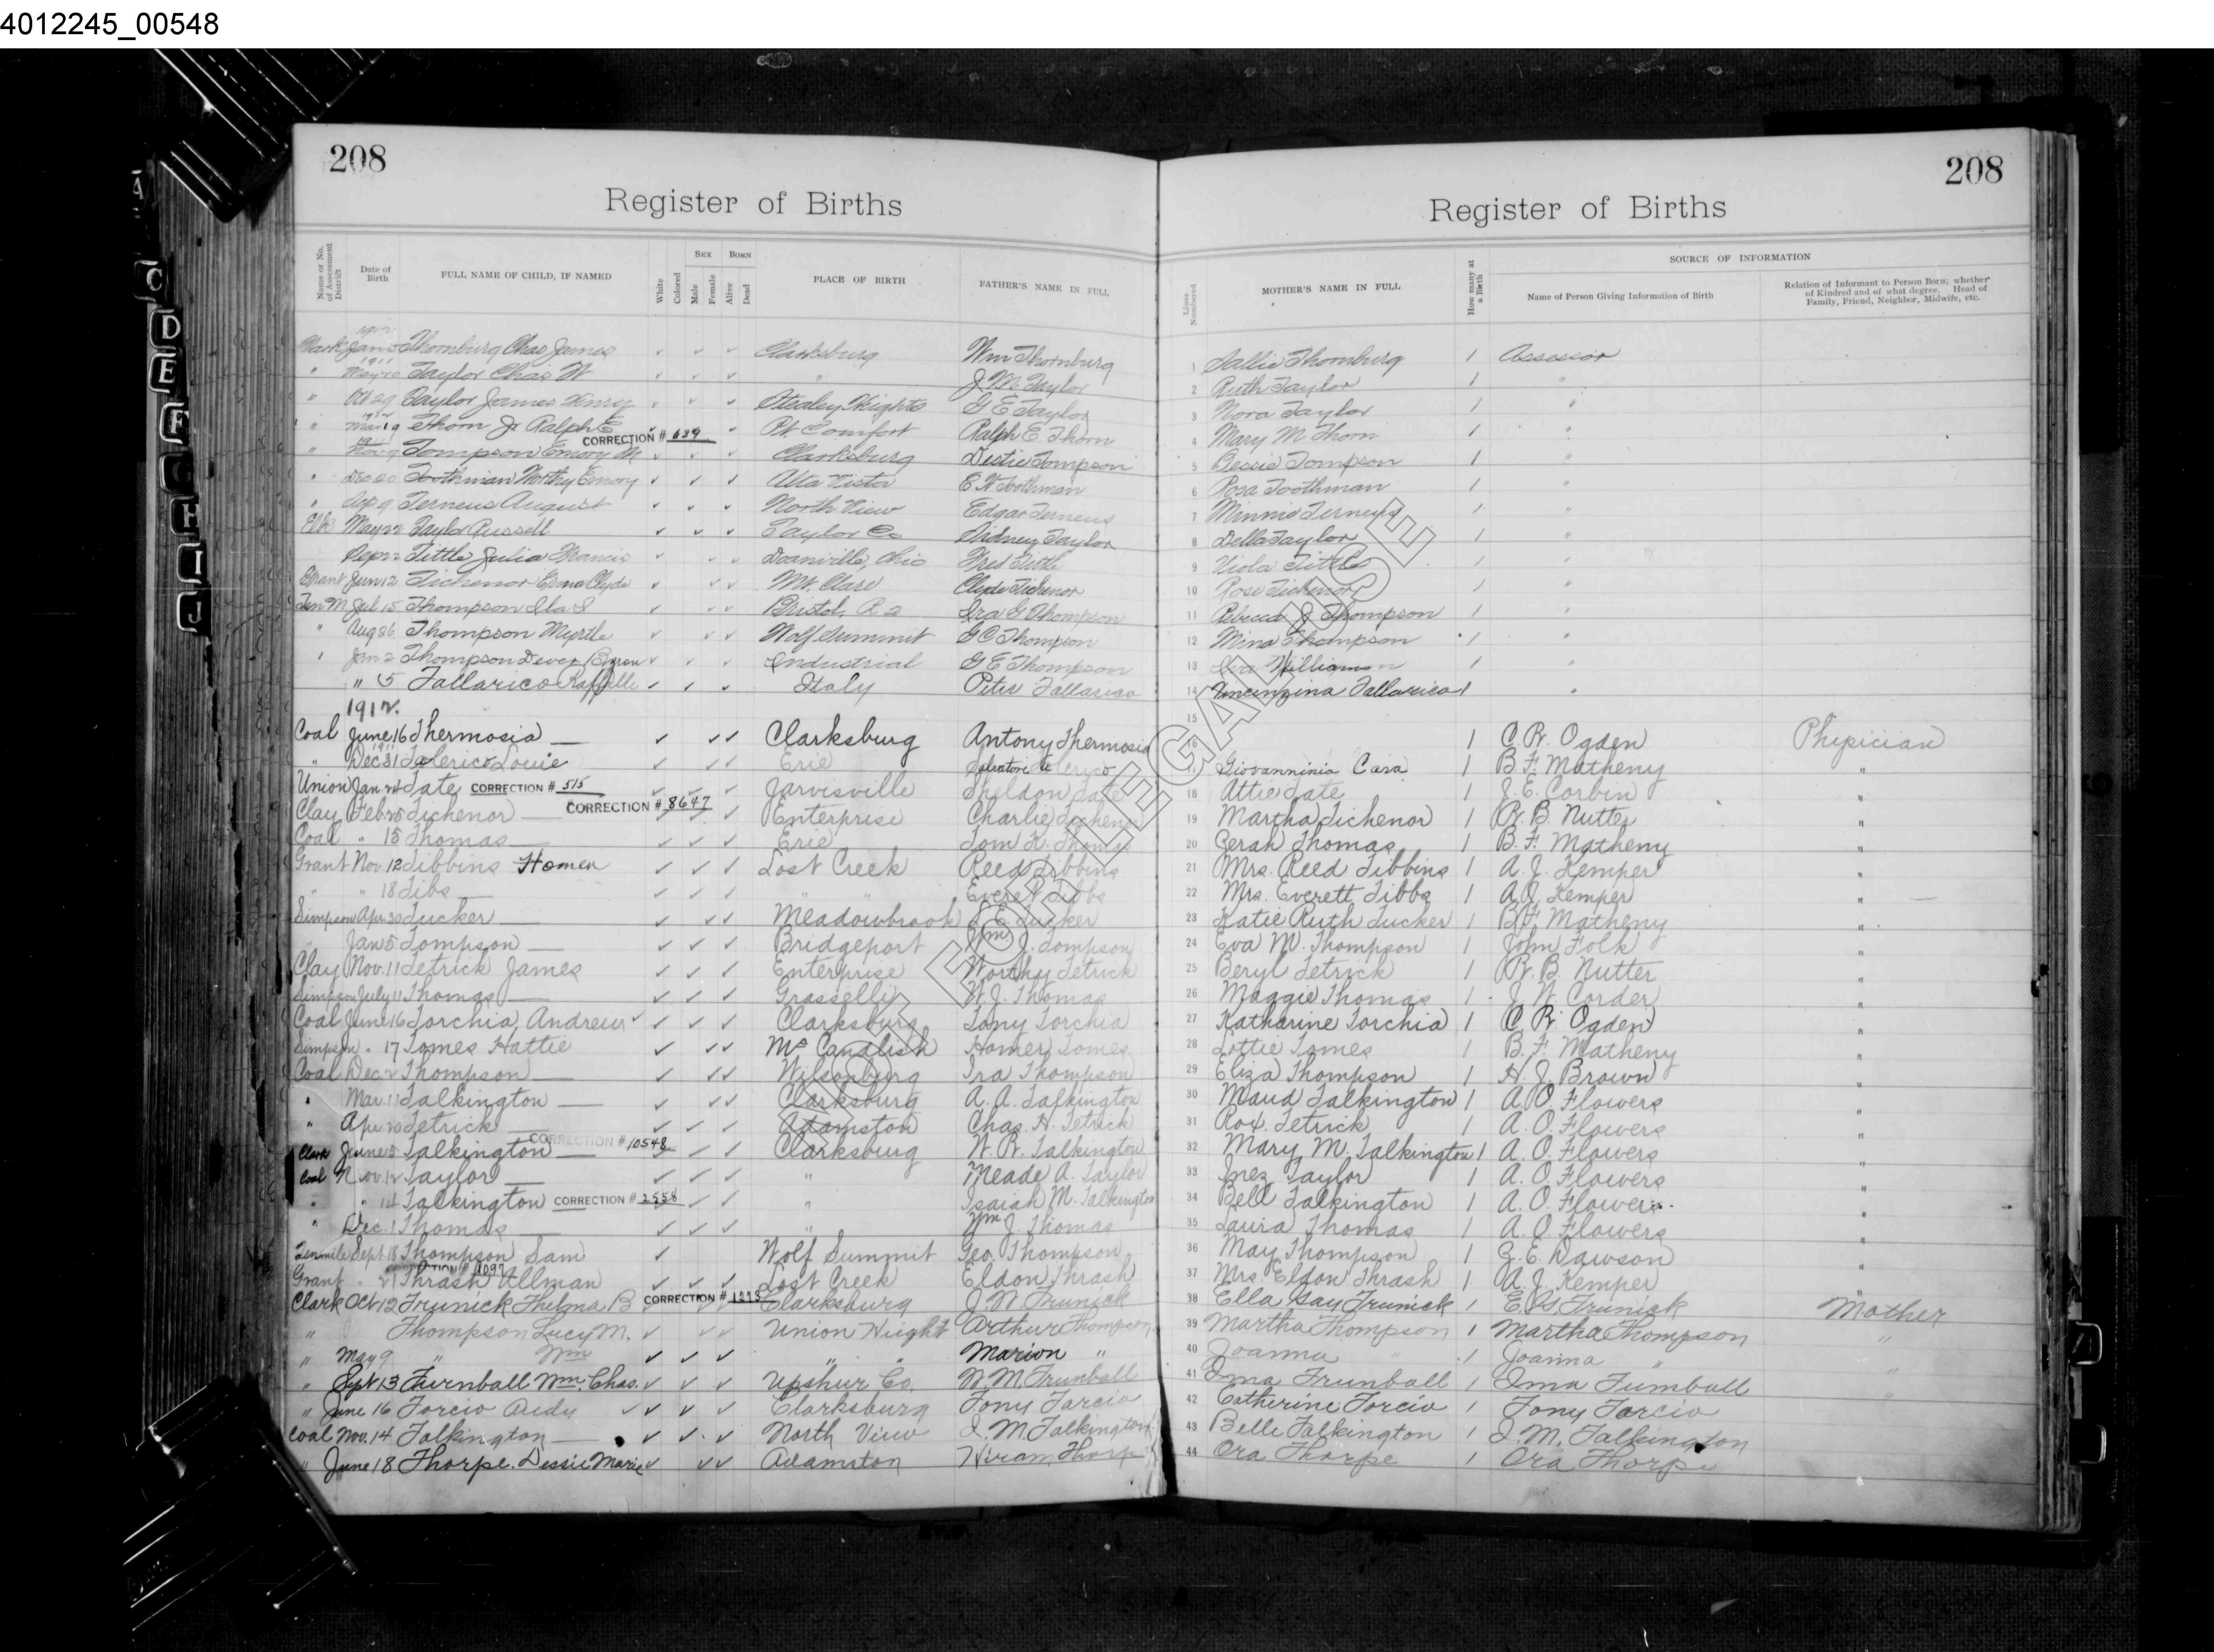 4012245_00548
208
208
Register of Births
Register of Births
Name or No. of Assessment District
Date of Birth
FULL NAME OF CHILD, IF NAMED
White
Colored
SEX
Male
Female
BORN
Alive
Dead
PLACE OF BIRTH
FATHER'S NAME IN FULL
Lines Numbered
MOTHER'S NAME IN FULL
How many at a Birth
SOURCE OF INFORMATION
Name of Person Giving Information of Birth
Relation of Informant to Person Born; whether of Kindred and of what degree. Head of Family, Friend, Neighbor, Midwife, etc.
1912
Clark Jan 5 Thornburg Chas James Clarksburg Wm Thornburg 1 Sallie Thornburg 1 Assessor
1911
" May 10 Taylor Chas W " J M Taylor 2 Ruth Taylor 1 "
" Oct 29 Taylor James Henry Stealey Hights G E Taylor 3 Nora Taylor 1 "
1912
" Mar 19 Thorn Jr Ralph E CORRECTION # 639 Pt. Comfort Ralph E Thorn 4 Mary M Thorn 1 "
1911
" Nov 9 Tompson Emory M Clarksburg Destie Tompson 5 Bessie Tompson 1 "
" Dec 20 Toothman Worthy Emory Alta Vista E W Toothman 6 Rosa Toothman 1 "
" Sep 9 Terneus August North View Edgar Terneus 7 Minnie Terneus 1 "
Elk May 22 Taylor Russell Taylor Co Sidney Taylor 8 Della Taylor 1 "
Sep 22 Tittle Julia Francis Deanville, Ohio Fred Tittle 9 Viola Tittle 1 "
Grant Jun 12 Tichenor Erma Clyde Mt. Clare Clyde Tichenor 10 Rose Tichenor 1 "
Ten M Jul 15 Thompson Ila S Bristol, R 2 Ira G Thompson 11 Rebecca J Thompson 1 "
" Aug 26 Thompson Myrtle Wolf Summit G C Thompson 12 Mina Thompson 1 "
" Jan 2 Thompson Dever Byron Industrial G E Thompson 13 Iva Williamson 1 "
" 5 Tallarico Raffille Italy Peter Tallarico 14 Vincinzina Tallarico 1 "
1912. 15
Coal June 16 Thermosia Clarksburg Antony Thermosia 16 1 C. R. Ogden Phipician
1911
" Dec 31 Talerico Louie Erie Salvatore Talerico 17 Giovanninia Cara 1 B. F. Matheny "
Union Jan 24 Tate CORRECTION # 515 Jarvisville Sheldon Tate 18 Attie Tate 1 J. E. Corbin "
Clay Feb 25 Tichenor CORRECTION # 8647 Enterprise Charlie Tichenor 19 Martha Tichenor 1 R. B. Nutter "
Coal " 15 Thomas Erie Tom K. Thomas 20 Gerah Thomas 1 B. F. Matheny "
Grant Nov. 12 Tibbins Homer Lost Creek Reed Tibbins 21 Mrs. Reed Tibbins 1 A. J. Kemper "
" " 18 Tibs " " Everett Tibbs 22 Mrs. Everett Tibbs 1 A. J. Kemper "
Simpson Apr 30 Tucker Meadowbrook E. Tucker 23 Katie Ruth Tucker 1 B. F. Matheny "
" Jan 5 Tompson Bridgeport Wm. J. Tompson 24 Eva M. Thompson 1 John Folk "
Clay Nov. 11 Tetrick James Enterprise Worthy Tetrick 25 Beryl Tetrick 1 R. B. Nutter "
Simpson July 11 Thomas Grasselli W. J. Thomas 26 Maggie Thomas 1 J. N. Corder "
Coal June 16 Torchia, Andrew Clarksburg Tony Torchia 27 Katharine Torchia 1 C. R. Ogden "
Simpson " 17 Tomes Hattie McCandlish Homer Tomes 28 Lottie Tomes 1 B. F. Matheny "
Coal Dec 2 Thompson Wilsonburg Ira Thompson 29 Eliza Thompson 1 H. J. Brown "
" Mar. 11 Talkington Clarksburg A. A. Talkington 30 Maud Talkington 1 A. O. Flowers "
" Apr 20 Tetrick Adamston Chas. H. Tetrick 31 Rox. Tetrick 1 A. O. Flowers "
Clark June 5 Talkington CORRECTION # 10548 Clarksburg W. R. Talkington 32 Mary. M. Talkington 1 A. O. Flowers "
Coal Nov. 12 Taylor " Meade A. Taylor 33 Inez Taylor 1 A. O. Flowers "
" " 14 Talkington CORRECTION # 2558 " Isaiah M. Talkington 34 Bell Talkington 1 A. O. Flowers "
" Dec. 1 Thomas " Wm J. Thomas 35 Laura Thomas 1 A. O. Flowers "
Tenmile Sept. 18 Thompson Sam Wolf Summit Geo. Thompson 36 May Thompson 1 G. E. Dawson "
Grant " 21 Thrash Allman CORRECTION # 1097 Lost Creek Eldon Thrash 37 Mrs. Eldon Thrash 1 A. J. Kemper "
Clark Oct 12 Trunick Thelma B CORRECTION # 1273 Clarksburg J. W. Trunick 38 Ella Gay Trunick 1 E. G. Trunick Mother
" Thompson Lucy M. Union Hight Arthur Thompson 39 Martha Thompson 1 Martha Thompson "
" May 9 " Wm " " Marion " 40 Joanna " 1 Joanna " "
" Sept 13 Turnball Wm. Chas. Upshur Co. W. M. Trunball 41 Ima Trunball 1 Ima Turnball "
" June 16 Torcio Andy Clarksburg Tony Tarcio 42 Catherine Torcio 1 Tony Tarcio
Coal Nov. 14 Talkington North View I. M. Talkington 43 Belle Talkington 1 I. M. Talkington
" June 18 Thorpe. Dessie Marie Adamston Hiram Thorpe 44 Ora Thorpe 1 Ora Thorpe
NOT FOR LEGAL USE
C
D
E
F
G
H
I
J